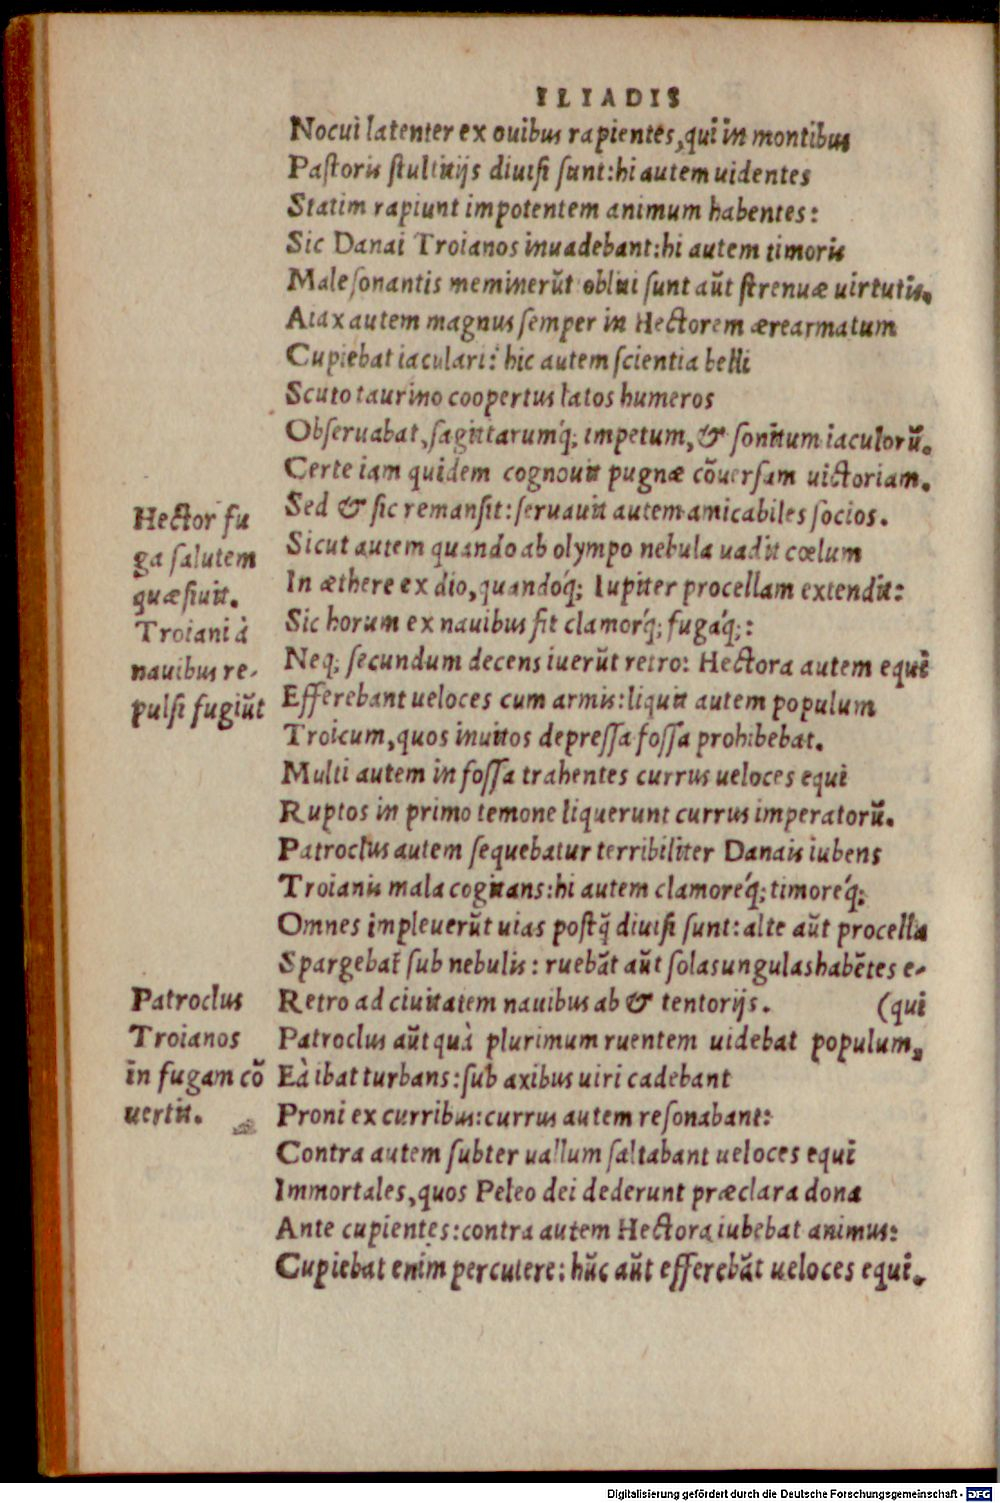 ILIADIS
Nocui latenter ex ouibus rapientes, qui in montibus
Paſtoris ſtultitijs diuiſi ſunt: hi autem uidentes
Statim rapiunt impotentem animum habentes:
Sic Danai Troianos inuadebant: hi autem timoris
Maleſonantis meminerũt obliti ſunt aũt ſtrenuæ uirtutis.
Aiax autem magnus ſemper in Hectorem ærearmatum
Cupiebat iaculari: hic autem ſcientia belli
Scuto taurino coopertus latos humeros
Obſeruabat, ſagittarumq́; impetum, & ſonitum iaculorũ.
Certe iam quidem cognouit pugnæ cõuerſam uictoriam.
Sed & ſic remanſit: ſeruauit autem amicabiles ſocios.
Sicut autem quando ab olympo nebula uadit cœlum
In æthere ex dio, quandoq́; Iupiter procellam extendit:
Sic horum ex nauibus fit clamorq́; fugaq́;:
Neq; ſecundum decens iuerũt retro: Hectora autem equi
Efferebant ueloces cum armis: liquit autem populum
Troicum, quos inuitos depreſſa foſſa prohibebat.
Multi autem in foſſa trahentes currus ueloces equi
Ruptos in primo temone liquerunt currus imperatorũ.
Patroclus autem ſequebatur terribiliter Danais iubens
Troianis mala cogitans: hi autem clamoreq́; timoreq́;
Omnes impleuerũt uias poſtq̃ diuiſi ſunt: alte aũt procella
Spargebat ſub nebulis: ruebãt aũt ſolas ungulas habẽtes e-
Retro ad ciuitatem nauibus ab & tentorijs. (qui
Patroclus aũt quà plurimum ruentem uidebat populum,
Eà ibat turbans: ſub axibus uiri cadebant
Proni ex curribus: currus autem reſonabant:
Contra autem ſubter uallum ſaltabant ueloces equi
Immortales, quos Peleo dei dederunt præclara dona
Ante cupientes: contra autem Hectora iubebat animus:
Cupiebat enim percutere: hũc aũt efferebãt ueloces equi.
Hector fu
ga ſalutem
quæſiuit.
Troiani à
nauibus re-
pulſi fugiũt
Patroclus
Troianos
in fugam cõ
uertit.
Digitalisierung gefördert durch die Deutsche Forschungsgemeinschaft - DFG